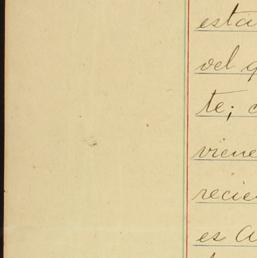 esta
vel q
te; c
viene
recie
es a